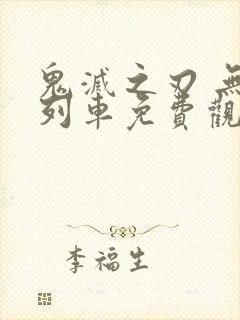 鬼滅之刃 無
列車免費觀
李福生